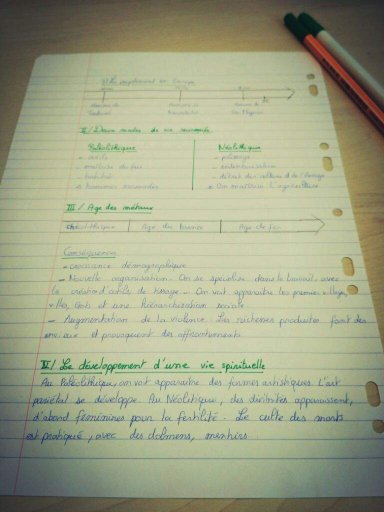 I/ Le peuplement en Europe
Homme de
Homme de
Homme de
II/ Deux modes de vie successifs
Paléolithique
Néolithique
- outils
- polissage
- maîtrise du feu
- sédentarisation
- habitat
- début des cultures et de l'élevage
hommes nomades
On maîtrise l'agriculture
III/ Age des métaux
Chalcolithique | Age du bronze | Age du fer
Conséquences
- croissance démographique
- Nouvelle organisation. On se spécialise dans le travail, avec
la création d'outils de tissage. On voit apparaître les premiers villages,
villes, Etats et une hiérarchisation sociale.
- Augmentation de la violence. Les richesses produites font des
envieux et provoquent des affrontements.
IV/ Le développement d'une vie spirituelle
Au Paléolithique, on voit apparaître des formes artistiques. L'art
pariétal se développe. Au Néolithique, des divinités apparaissent,
d'abord féminines pour la fertilité. Le culte des morts
est pratiqué, avec des dolmens, menhirs.